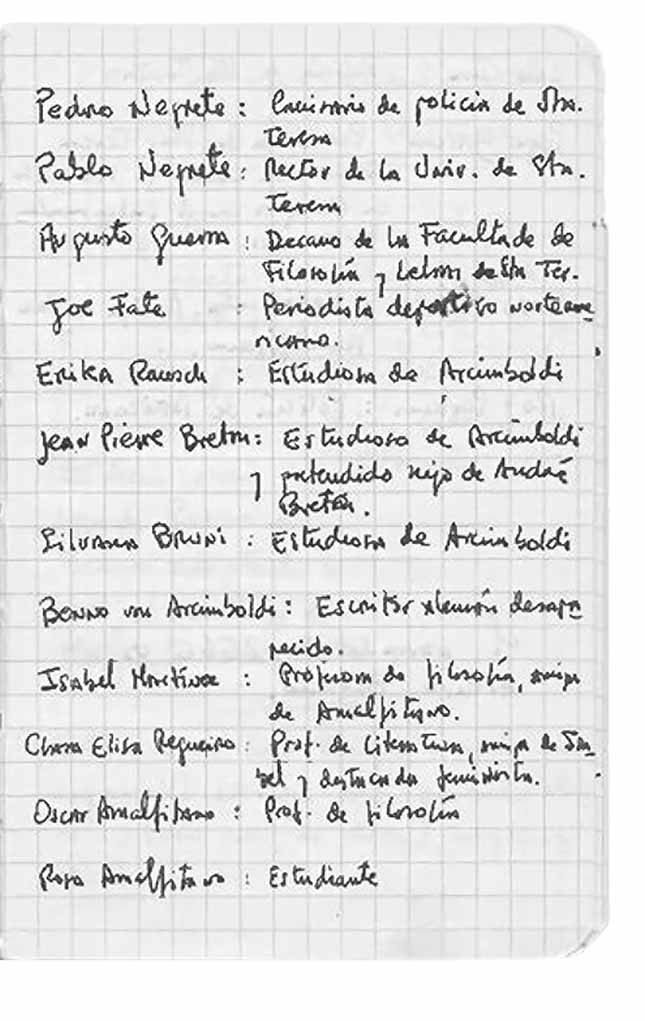 Pedro Negrete : Comisario de policía de Sta.
Teresa
Pablo Negrete : Rector de la Univ. de Sta.
Teresa
Augusto Guerra : Decano de la Facultad de
Filosofía y Letras de Sta Ter.
Joe Fate : Periodista deportivo norteame
ricano.
Erika Rausch : Estudiosa de Arcimboldi
Jean Pierre Breton : Estudioso de Arcimboldi
y pretendido hijo de André
Breton.
Silvana Bruni : Estudiosa de Arcimboldi
Benno von Arcimboldi : Escritor alemán desapa
recido.
Isabel Martínez : Profesora de filosofía, amiga
de Amalfitano.
Clara Elisa Regueiro : Prof. de Literatura, amiga de Isa
bel y destacada feminista.
Oscar Amalfitano : Prof. de filosofía
Rosa Amalfitano : Estudiante